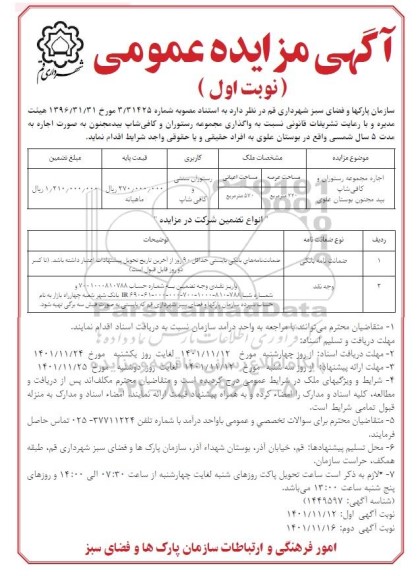 آگهی مزایده عمومی
(نوبت اول)
شهرداری قم
سازمان پارکها و فضای سبز شهرداری قم در نظر دارد به استناد مصوبه شماره ۳/۳۱۴۲۵ مورخ ۱۳۹۶/۳۱/۳۱ هیئت
مدیره و با رعایت تشریفات قانونی نسبت به واگذاری مجموعه رستوران و کافی‌شاپ بیدمجنون به صورت اجاره به
مدت ۵ سال شمسی واقع در بوستان علوی به افراد حقیقی و یا حقوقی واجد شرایط اقدام نماید.
موضوع مزایده مشخصات ملک کاربری قیمت پایه مبلغ تضمین
اجاره مجموعه رستوران و کافی‌شاپ بید مجنون بوستان علوی مساحت عرصه مساحت اعیانی رستوران سنتی و کافی شاپ ۲۷۰,۰۰۰,۰۰۰ ریال ماهیانه ۱,۲۱۰,۰۰۰,۰۰۰ ریال
" انواع تضمین شرکت در مزایده "
ردیف نوع ضمانت نامه توضیحات
۱ ضمانت نامه بانکی ضمانت‌نامه‌های بانکی بایستی حداقل ۹۰ روز از آخرین تاریخ تحویل پیشنهادات اعتبار داشته باشد. (تا کسر
دو روز قابل قبول است)
۲ وجه نقد واریز نقدی وجه تضمین به شماره حساب ۷۰۰۱۰۰۰۸۱۰۷۸۸ و
۱- متقاضیان محترم می‌توانند با مراجعه به واحد درآمد سازمان نسبت به دریافت اسناد اقدام نمایند.
مهلت دریافت و تسلیم اسناد:
۲- مهلت دریافت اسناد: از روز چهارشنبه مورخ ۱۴۰۱/۱۱/۱۲ لغایت روز یکشنبه مورخ ۱۴۰۱/۱۱/۲۴
۳- مهلت ارائه پیشنهاد: از روز مورخ ۱۴۰۱/۱۱/۱۲ لغایت روز مورخ ۱۴۰۱/۱۱/۲۵
۴- شرایط و ویژگیهای ملک در شرایط عمومی درج گردیده است و متقاضیان محترم مکلف‌اند پس از دریافت و
مطالعه، کلیه اسناد و مدارک را امضاء کرده و به همراه پیشنهاد قیمت ارائه نمایند. امضاء اسناد و مدارک به منزله
قبول تمامی شرایط است.
۵- متقاضیان محترم برای سوالات تخصصی و عمومی باواحد درآمد با شماره تلفن ۳۷۷۱۱۲۲۴-۰۲۵ تماس حاصل
فرمایند.
۶- محل تسلیم پیشنهادها: قم، خیابان آذر، بوستان شهداء آذر، سازمان پارک ها و فضای سبز شهرداری قم، طبقه
همکف، حراست سازمان.
۷- *لازم به ذکر است ساعت تحویل پاکت روزهای شنبه لغایت چهارشنبه از ساعت ۰۷:۳۰ الی ۱۴:۰۰ و روزهای
پنج شنبه ساعت ۱۳:۰۰ می‌باشد.
(شناسه آگهی: ۱۴۴۹۵۹۷)
نوبت آگهی اول: ۱۴۰۱/۱۱/۱۲
نوبت آگهی دوم: ۱۴۰۱/۱۱/۱۶
امور فرهنگی و ارتباطات سازمان پارک ها و فضای سبز